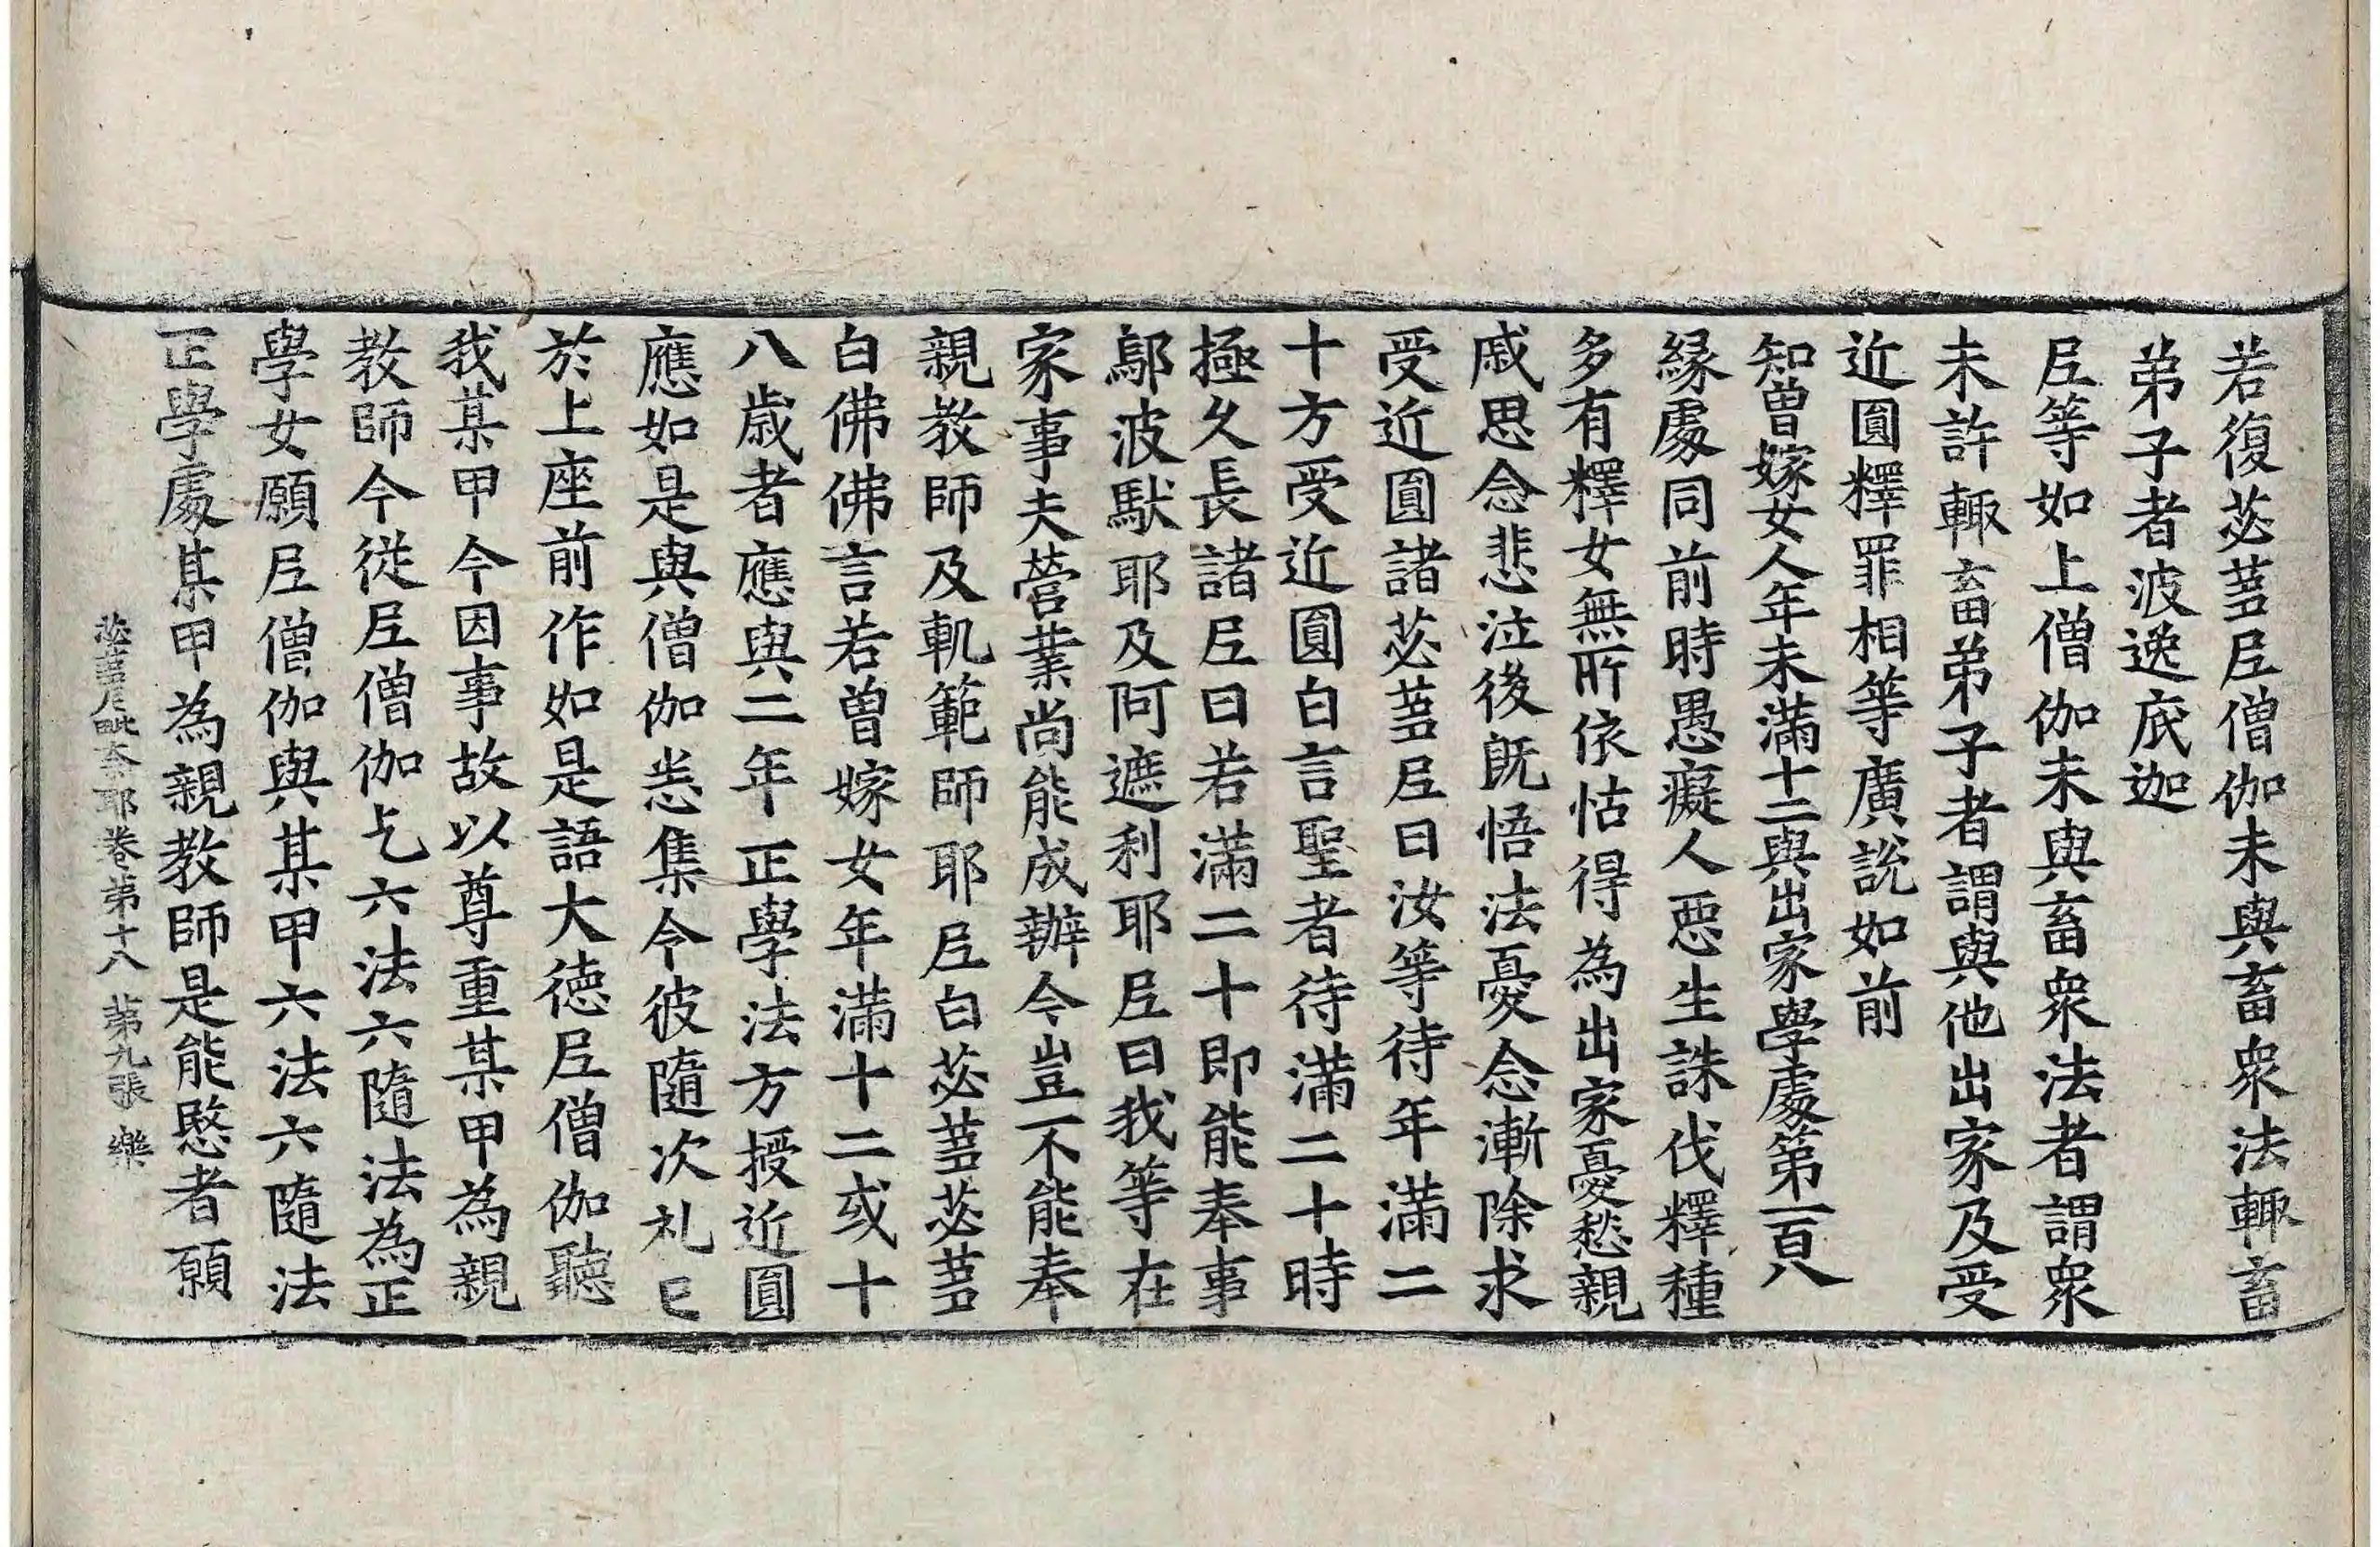 若復苾蒭尼僧伽未與畜衆法輙畜
弟子者波逸底迦
尼等如上僧伽未與畜衆法者謂衆
未許輙畜弟子者謂與他出家及受
近圓釋罪相等廣說如前
知曾嫁女人年未滿十二與出家學處第一百八
緣處同前時愚癡人惡生誅伐釋種
多有釋女無所依怙得為出家憂愁親
戚思念悲泣後既悟法憂念漸除求
受近圓諸苾蒭尼曰汝等待年滿二
十方受近圓白言聖者待滿二十時
極久長諸尼曰若滿二十即能奉事
鄔波馱耶及阿遮利耶尼曰我等在
家事夫營業尚能成辦今豈不能奉
親教師及軌範師耶尼白苾蒭苾蒭
白佛佛言若曾嫁女年滿十二或十
八歲者應與二年正學法方授近圓
應如是與僧伽悉集令彼隨次礼已
於上座前作如是語大德尼僧伽聽
我某甲今因事故以尊重某甲為親
教師今從尼僧伽乞六法六隨法為正
學女願尼僧伽與某甲六法六隨法
正學處某甲為親教師是能愍者願
苾蒭尼毗奈耶卷第十八 第九張 樂